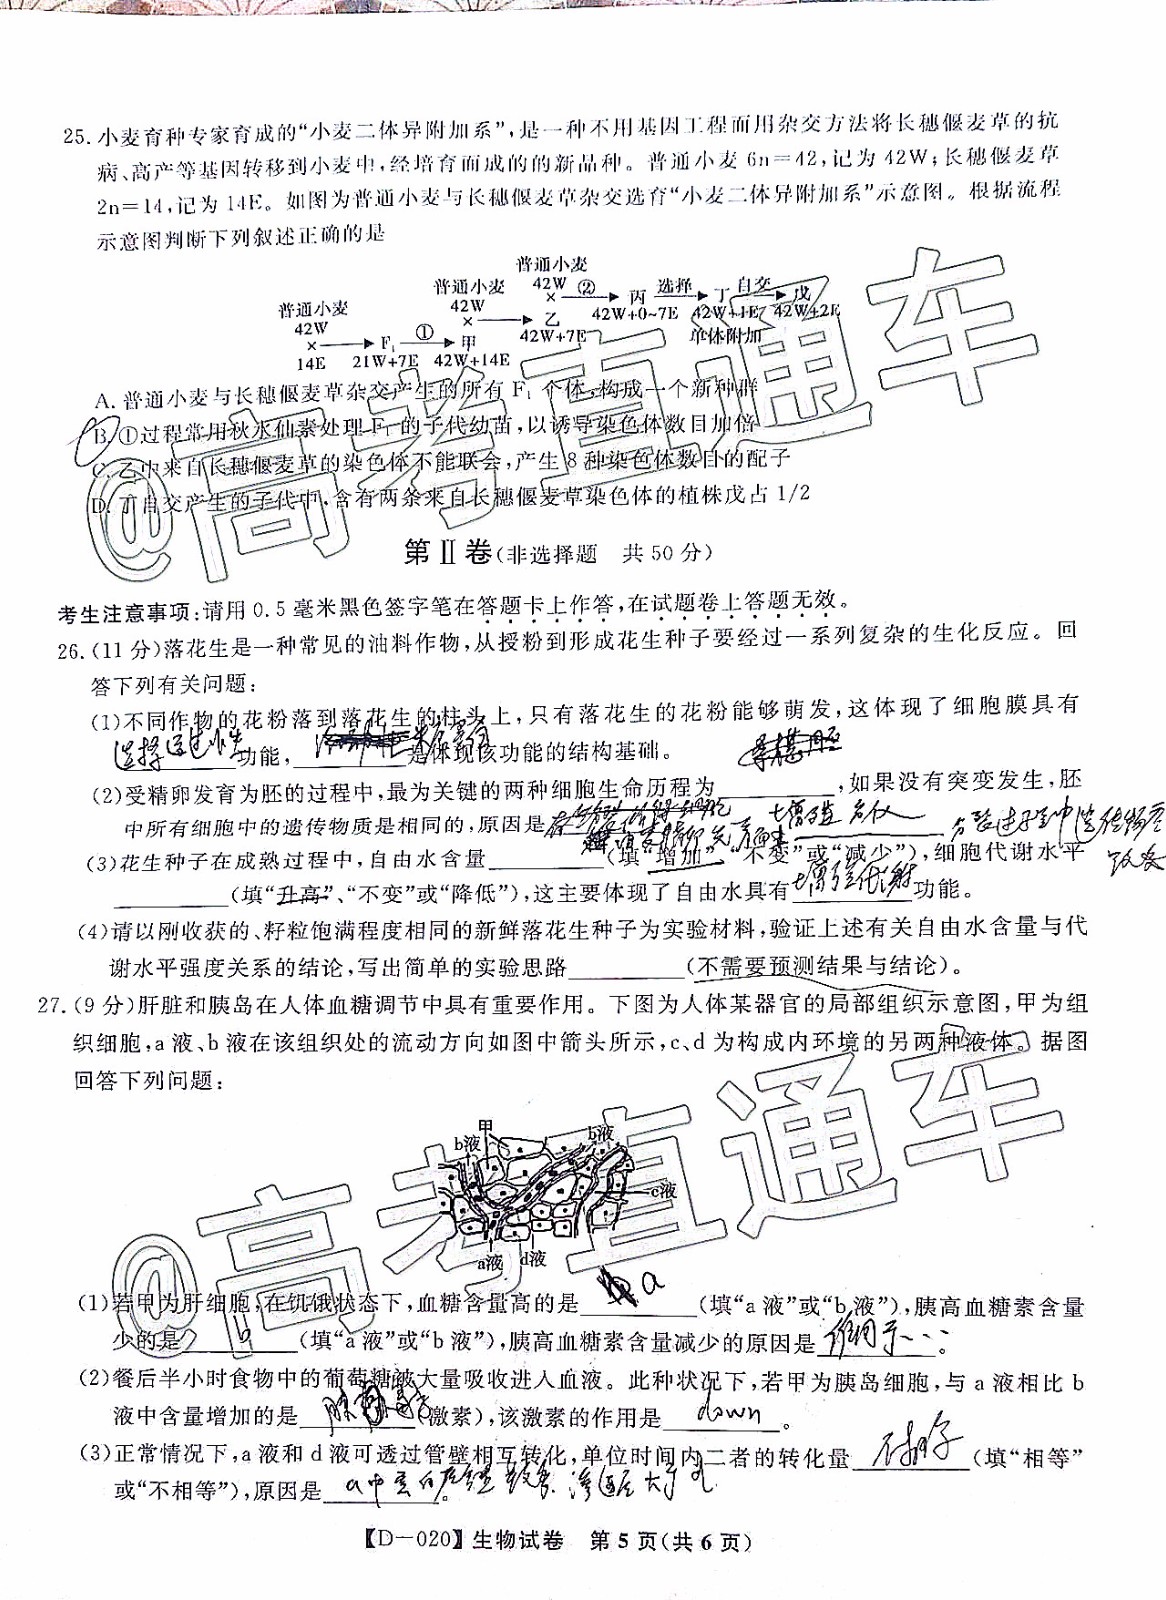 25. 小麦育种专家育成的“小麦二体异附加系”,是一种不用基因工程而用杂交方法将长穗偃麦草的抗
病、高产等基因转移到小麦中,经培育而成的的新品种。普通小麦 6n=42,记为 42W;长穗偃麦草
2n=14,记为 14E。如图为普通小麦与长穗偃麦草杂交选育“小麦二体异附加系”示意图。根据流程
示意图判断下列叙述正确的是
普通小麦 42W × 14E
F₁ 21W+7E
①
甲 42W+14E
普通小麦 42W ×
乙 42W+7E
普通小麦 42W ×
②
丙 42W+0~7E
选择
丁 42W+1E 单体附加
自交
戊 42W+2E
A. 普通小麦与长穗偃麦草杂交产生的所有 F₁ 个体,构成一个新种群
B. ①过程常用秋水仙素处理 F₁ 的子代幼苗,以诱导染色体数目加倍
C. 乙中来自长穗偃麦草的染色体不能联会,产生 8 种染色体数目的配子
D. 丁自交产生的子代中,含有两条来自长穗偃麦草染色体的植株戊占 1/2
@高考直通车
第Ⅱ卷(非选择题 共 50 分)
考生注意事项:请用 0.5 毫米黑色签字笔在答题卡上作答,在试题卷上答题无效。
26. (11 分)落花生是一种常见的油料作物,从授粉到形成花生种子要经过一系列复杂的生化反应。回
答下列有关问题:
(1)不同作物的花粉落到落花生的柱头上,只有落花生的花粉能够萌发,这体现了细胞膜具有
选择透过性功能,______是体现该功能的结构基础。
(2)受精卵发育为胚的过程中,最为关键的两种细胞生命历程为______,如果没有突变发生,胚
中所有细胞中的遗传物质是相同的,原因是______。
(3)花生种子在成熟过程中,自由水含量______(填“增加”“不变”或“减少”),细胞代谢水平
______(填“升高”、“不变”或“降低”),这主要体现了自由水具有______功能。
(4)请以刚收获的、籽粒饱满程度相同的新鲜落花生种子为实验材料,验证上述有关自由水含量与代
谢水平强度关系的结论,写出简单的实验思路______(不需要预测结果与结论)。
27. (9 分)肝脏和胰岛在人体血糖调节中具有重要作用。下图为人体某器官的局部组织示意图,甲为组
织细胞,a 液、b 液在该组织处的流动方向如图中箭头所示,c、d 为构成内环境的另两种液体。据图
回答下列问题:
甲
b液 b液
c液
a液 d液
@高考直通车
(1)若甲为肝细胞,在饥饿状态下,血糖含量高的是 a (填“a 液”或“b 液”),胰高血糖素含量
少的是 b (填“a 液”或“b 液”),胰高血糖素含量减少的原因是______。
(2)餐后半小时食物中的葡萄糖被大量吸收进入血液。此种状况下,若甲为胰岛细胞,与 a 液相比 b
液中含量增加的是______(激素),该激素的作用是 down 。
(3)正常情况下,a 液和 d 液可透过管壁相互转化,单位时间内二者的转化量 不相等 (填“相等”
或“不相等”),原因是______。
【D-020】生物试卷 第 5 页(共 6 页)